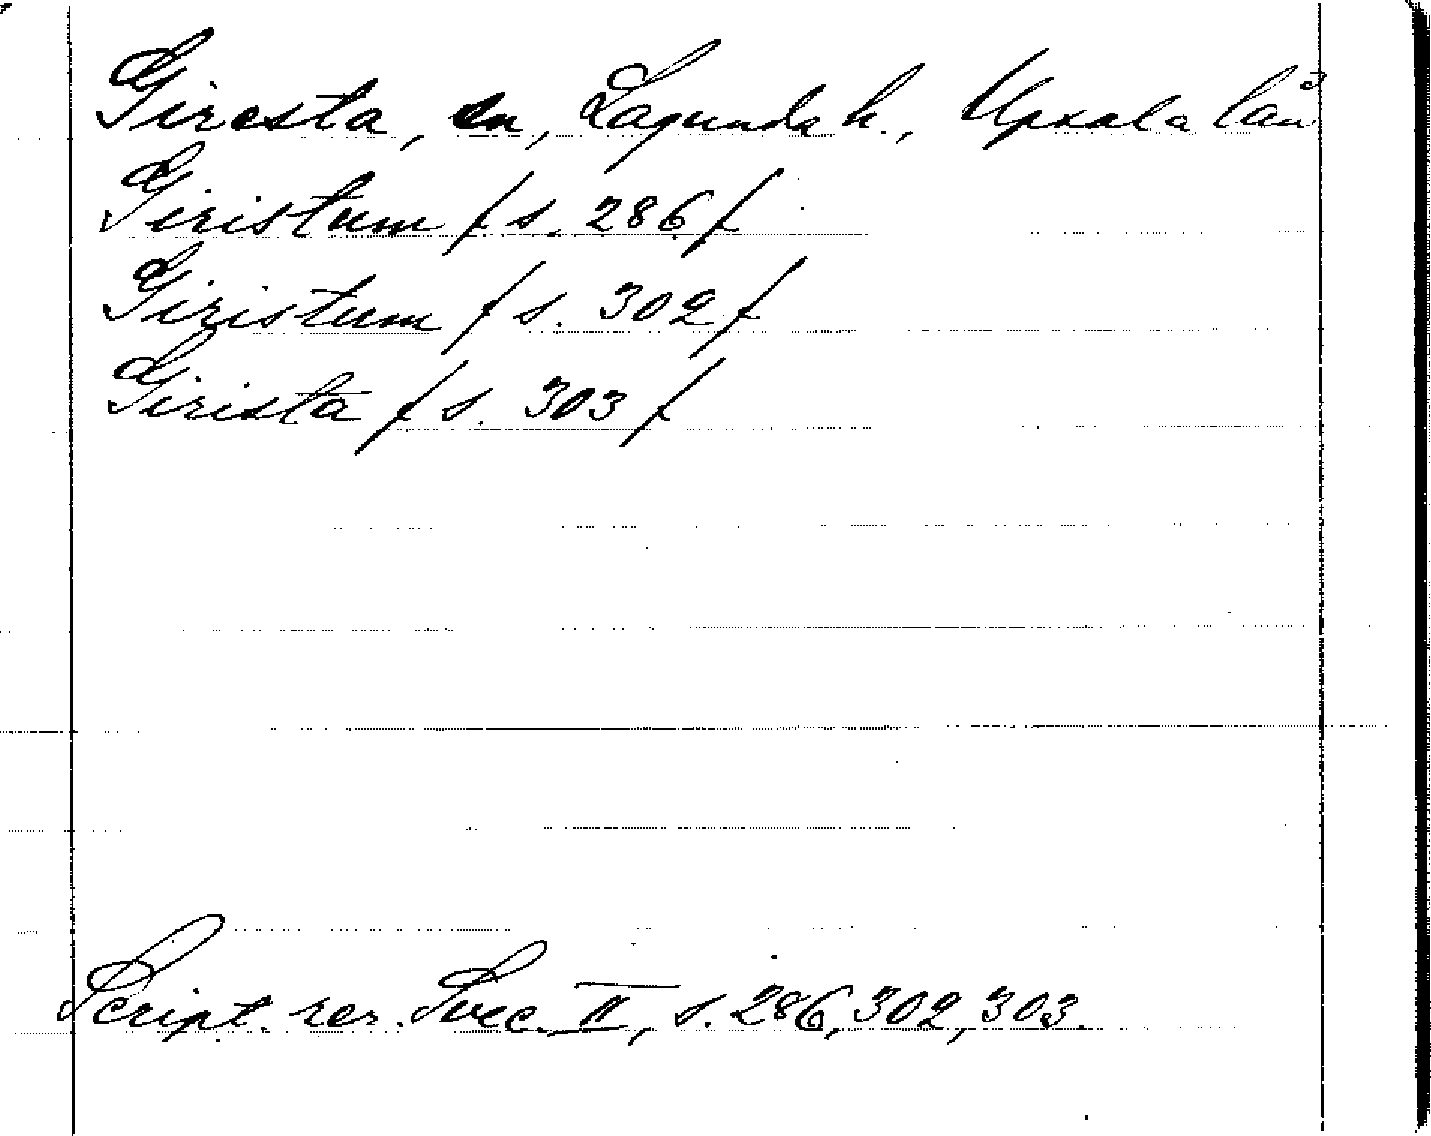 Giresta, sn, Lagunda h., Upsala län
Giristum /s. 286/
Giristum /s. 302/
Girista /s. 303/
Script. rer. Svec. II, s. 286, 302, 303.